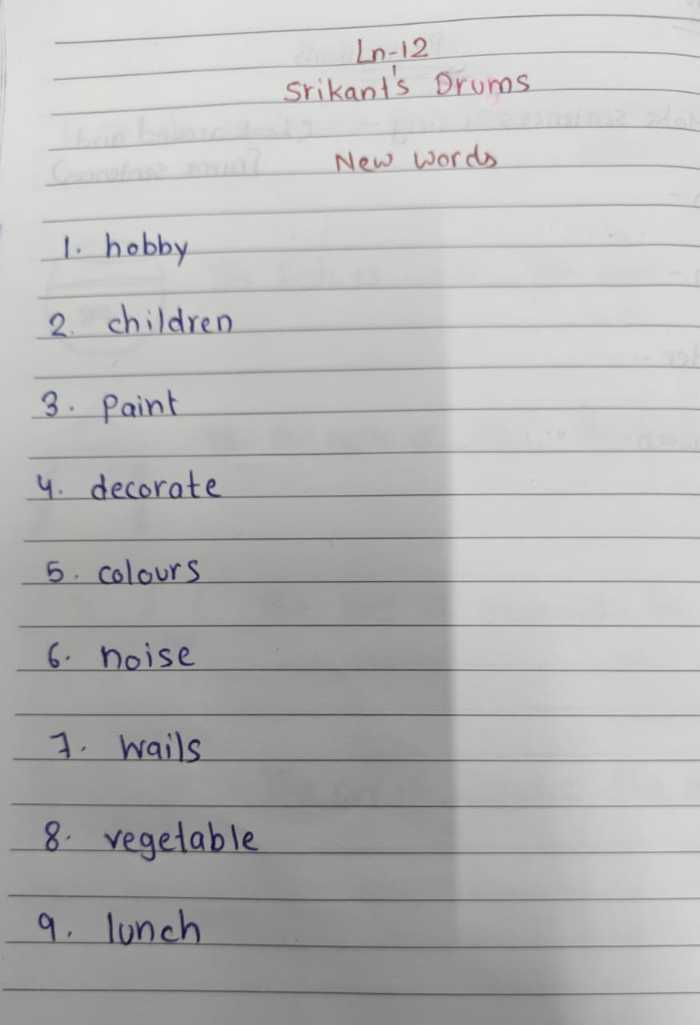 Ln-12
Srikant's Drums
New words
1. hobby
2. children
3. paint
4. decorate
5. colours
6. noise
7. wails
8. vegetable
9. lunch